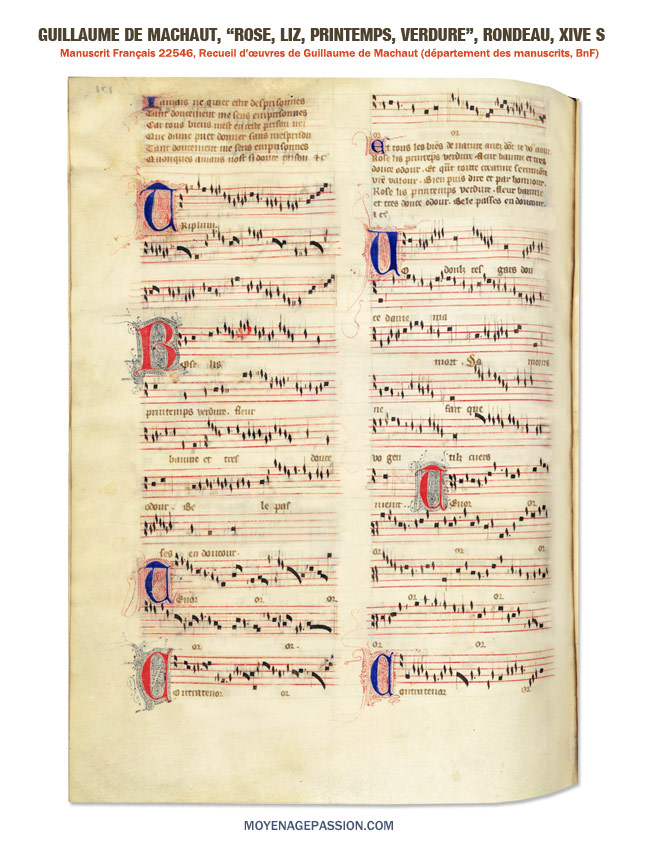 GUILLAUME DE MACHAUT, “ROSE, LIZ, PRINTEMPS, VERDURE”, RONDEAU, XIVE S
Manuscrit Français 22546, Recueil d'œuvres de Guillaume de Machaut (département des manuscrits, BnF)
Iamais ne quier estre desprisonnes
Tant doucement me sens emprisonnes
Car tous biens mest en ceste prison
Que dame puet donner sans mesprison
Tant doucement me sens emprisonnes
Quonques amans not si douce prison &c
Triplum.
Rose lis
printemps verdure. fleur
baume et tres douce
odour. Be le pas
ses en doucour.
Tenor or. or.
or. or.
Contratenor or.
or. or.
Et tous les biés de nature
Rose lis printéps verdure. fleur baume et tres
douce odour. Et que toute creature
valour. bien puis dire et par honnour.
Rose lis printemps verdure. fleur baume
et tres douce odour. Bele passes en doucour.
&c
Vo doulz res gars dou
ce dame ma
mort. Sa mours
ne fait que
vo gen tilz cuers
Tenor or.
or. or. or.
or.
Contratenor or.
MOYENAGEPASSION.COM